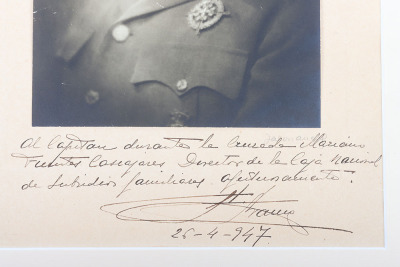 Al Capitan durante la Cruzada Mariano
Fuentes Cascajares Director de la Caja Nacional
de Subsidios familiares afectuosamente.
F. Franco
26-4-947.